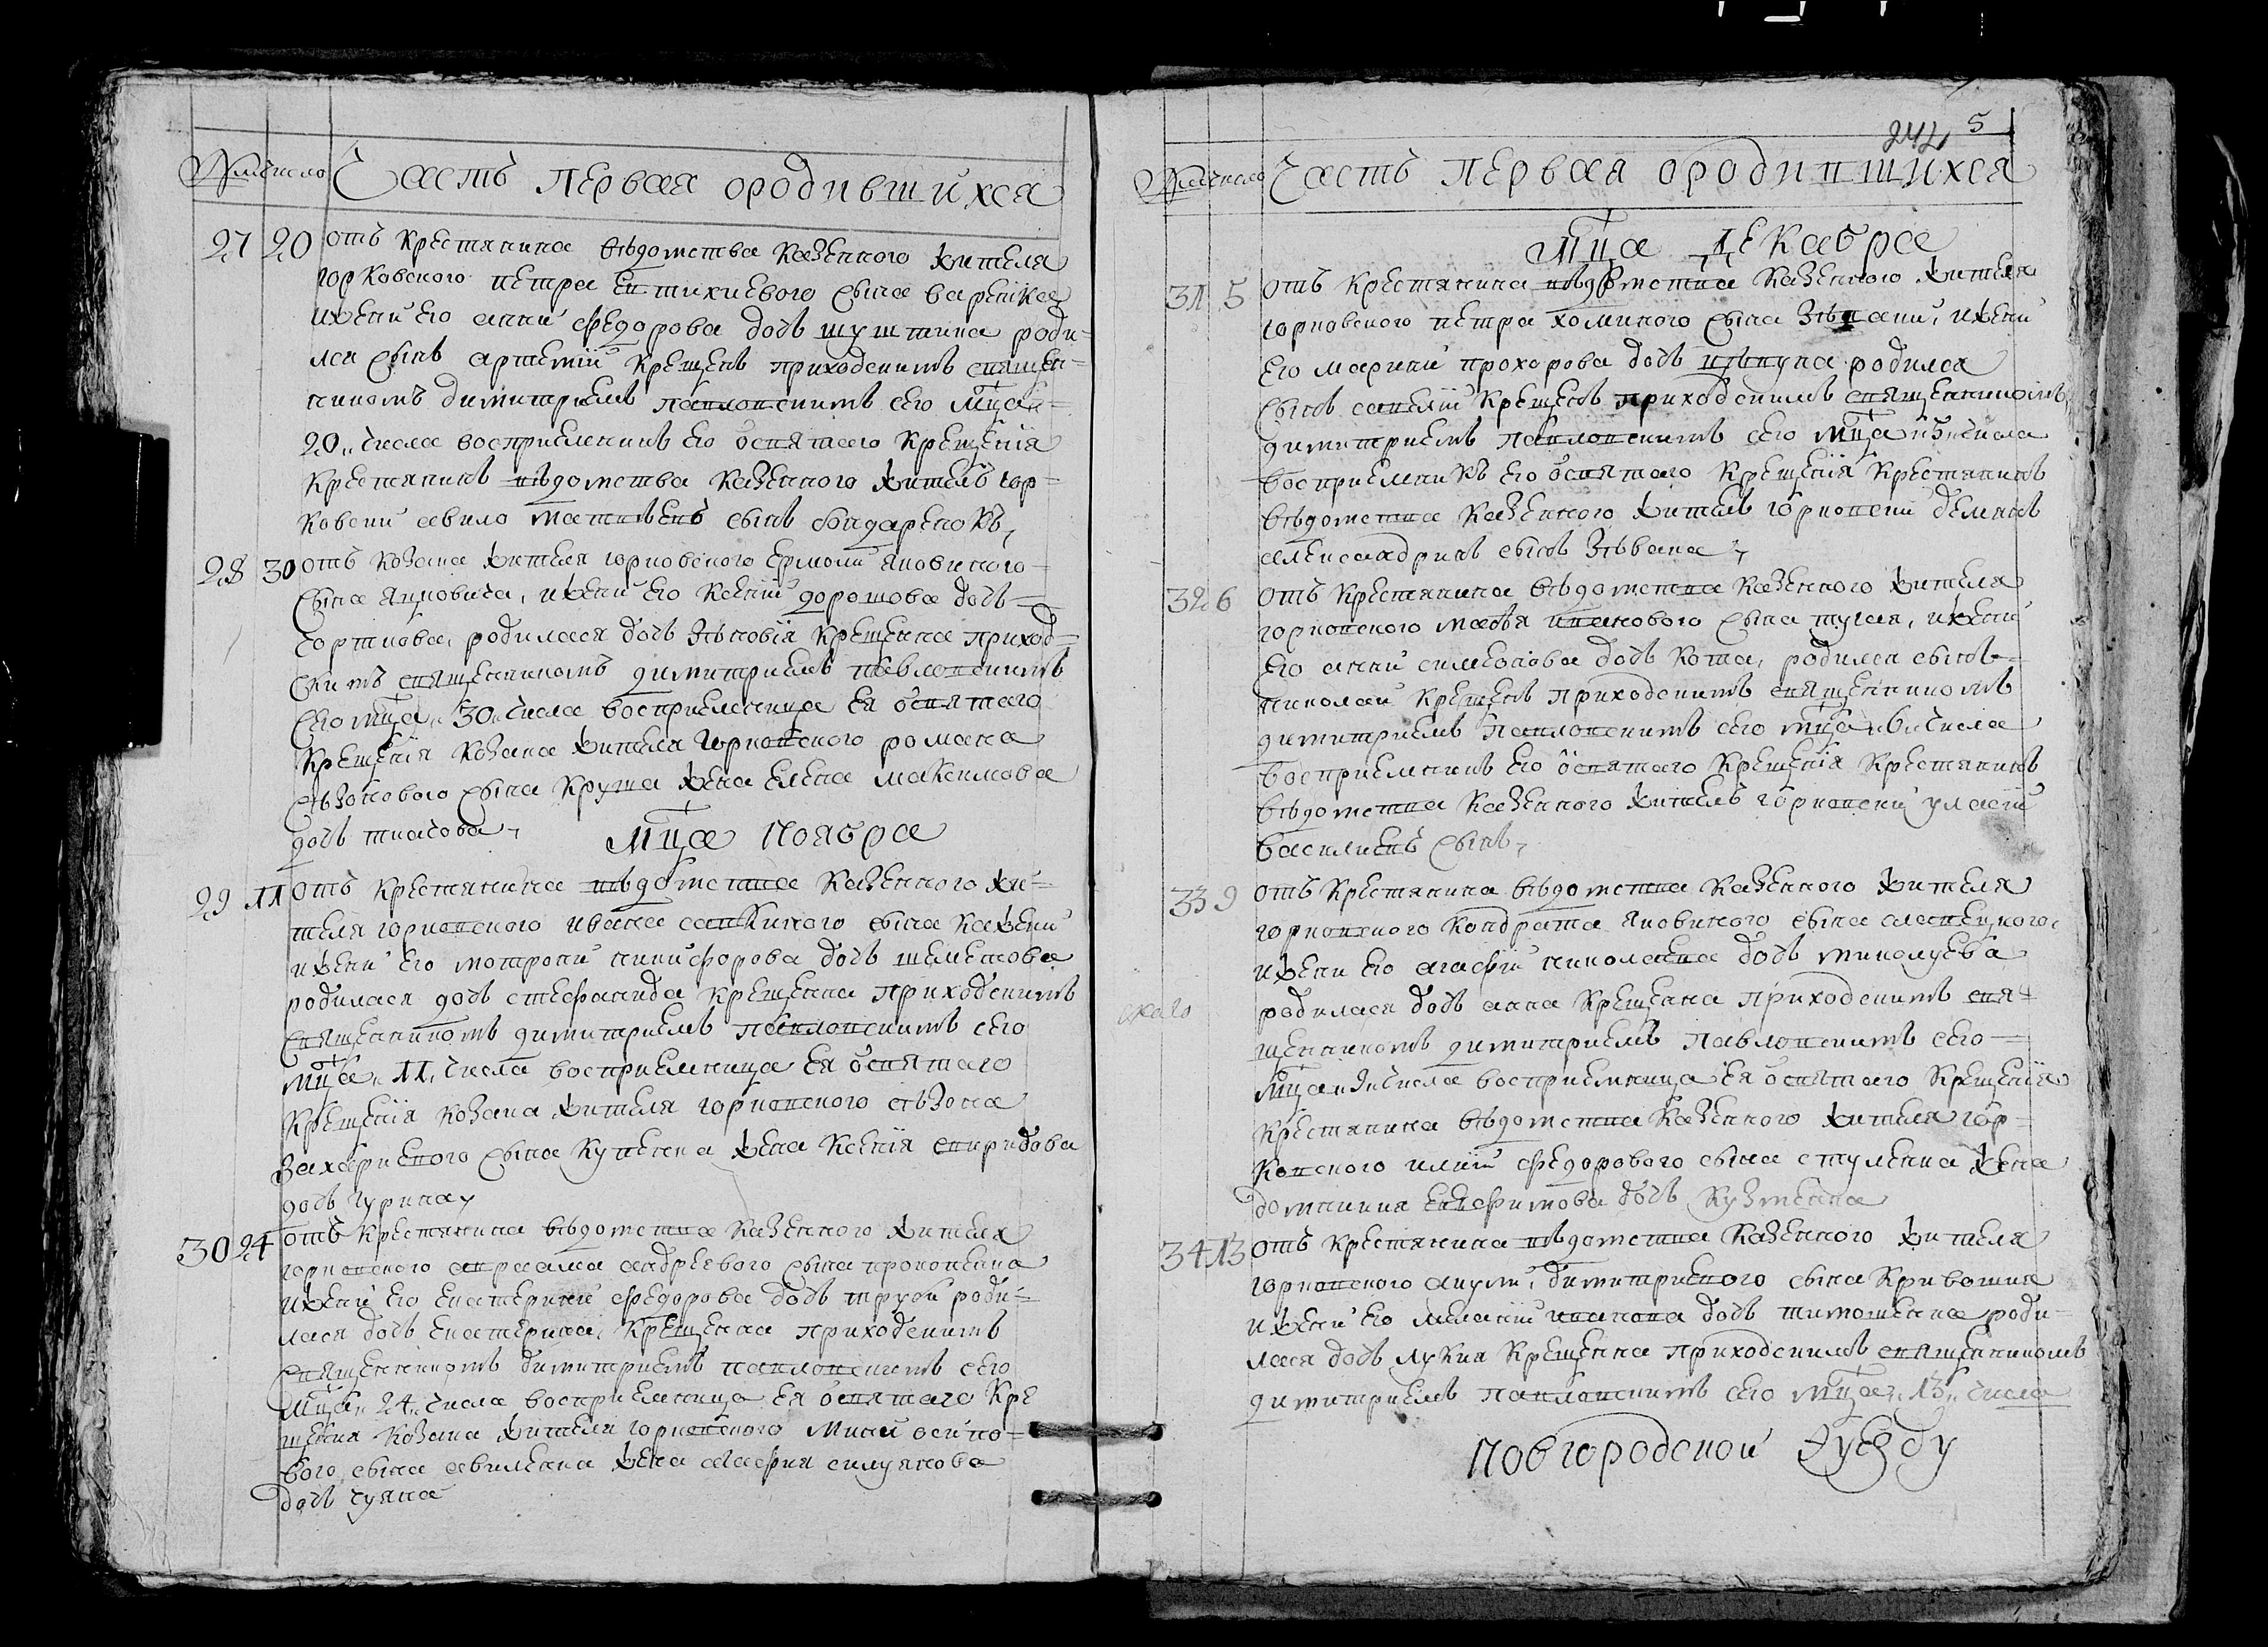 № число Часть первая ородившихся
27 20 отъ крестянина вѣдомства казенного жителя
горковского петра евтихиевого сына варейка
ижени его анни федорова дочь шуштина роди-
лся сынъ артемїй крещенъ приходскимъ священ-
никомъ димитриемъ павловскимъ сего мца
20 числа восприемникъ его ѡсвятаго крещенїя
крестянинъ вѣдомства казенного житель гор-
ковски савило матвѣевъ сынъ бондаренокъ,
28 30 отъ козака жителя горковского ермоли яковисного
сына яцковича, ижени его ксенїи дорошова дочь
родилася дочь зѣновїя крещенна приход-
скимъ священникомъ димитриемъ павловскимъ
сего мца 30 числа восприемница ея ѡсвятаго
крещенїя козака жителя горковского романа
сѣзонового сына крута жена елена максимова
дочь
Мца Ноября
29 11 отъ крестянина вѣдомства казенного жи-
теля горковского ивана савкиного сына
ижени его мотрони никифорова дочь шеметова
родилася дочь стефанида крещенна приходскимъ
священникомъ димитриемъ павловскимъ сего
мца 11 числа восприемница ея ѡсвятаго
крещенїя козака жителя горковского сѣзона
захариевого сына купенка жена ксенїя спиридова
дочь гурина,
30 24 отъ крестянина вѣдомства казенного жителя
горковского аврама андреевого сына прокопенка
ижени его екатерини федорова дочь труби роди-
лася дочь екатерина, крещенна приходскимъ
священникомъ димитриемъ павловскимъ сего
мца 24 числа восприемница ея ѡсвятаго кре
щения козака жителя горковского мини осипо-
вого сына савиленка жена агафия силуянова
дочь чуяна
242 5
№ число Часть первая ородившихся
Мца Декабра
31 5 отъ крестянина вѣдомства казенного жителя
горковского петра хоминого сына ижени
его марини прохорова дочь родился
сынъ савелїй крещенъ приходскимъ священникомъ
димитриемъ павловскимъ сего мца 5 числа
восприемникъ его ѡсвятаго крещенїя крестянинъ
вѣдомства казенного житель горковски демянъ
александринъ сынъ
32 6 отъ крестянина вѣдомства казенного жителя
горковского матвѣя ивановского сына тугая, ижени
его анни симонова дочь кота, родился сынъ
николай крещенъ приходскимъ священникомъ
димитриемъ павловскимъ сего мца 6 числа
восприемникъ его ѡсвятаго крещенїя крестянинъ
вѣдомства казенного житель горковски уласїй
василиевъ сынъ,
33 9 отъ крестянина вѣдомства казенного жителя
горковского кондрата яковиного сына
ижени его агафїи николаева дочь миколуева
родилася дочь анна крещенна приходскимъ свя-
щенникомъ димитриемъ павловскимъ сего
мца 9 числа восприемница ея ѡсвятаго крещенїя
крестянина вѣдомства казенного жителя гор-
ковского илїи федорового сына ступенка жена
домникия евфимова дочь кузменка
34 13 отъ крестянина вѣдомства казенного жителя
горковского димитриевого сына кривошия
ижени его меланїи иванова дочь тимошенка роди-
лася дочь лукия крещенна приходскимъ священникомъ
димитриемъ павловскимъ сего мца 13 числа
Новгородской Ѣуезду